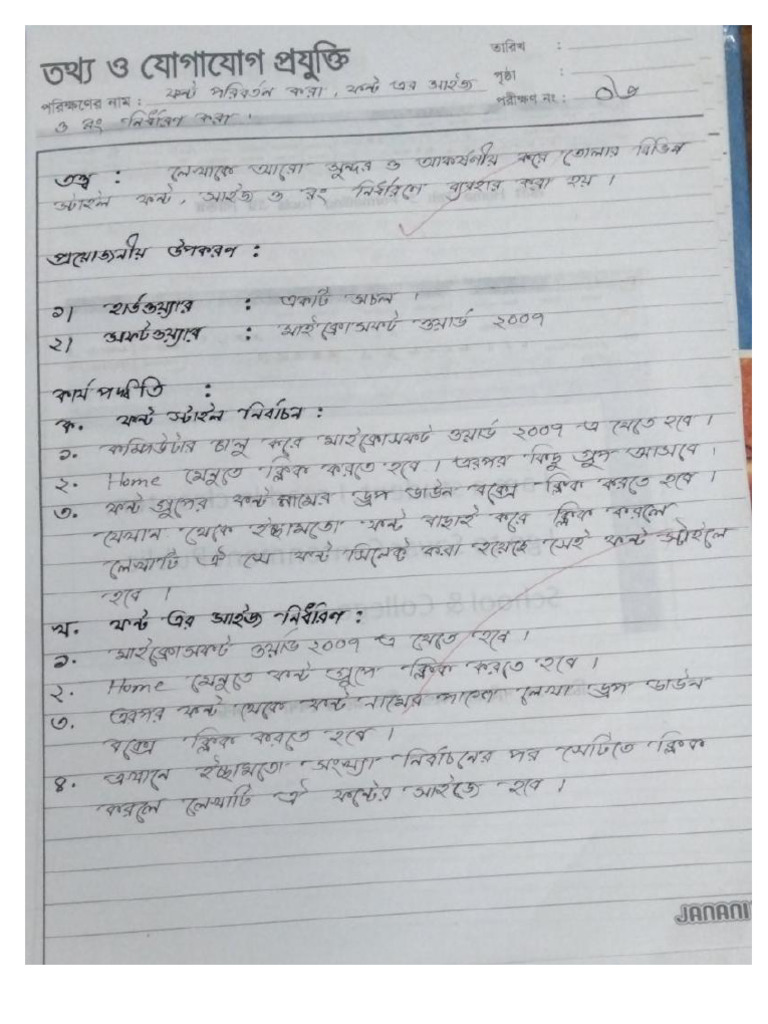 তথ্য ও যোগাযোগ প্রযুক্তি
তারিখ :
পৃষ্ঠা :
পরীক্ষণের নাম : ফন্ট পরিবর্তন করা, ফন্ট এর সাইজ
পরীক্ষণ নং : ০৬
ও রং নির্ধারণ করা।
তত্ত্ব : লেখাকে আরো সুন্দর ও আকর্ষনীয় করে তোলার বিভিন্ন
স্টাইল ফন্ট, সাইজ ও রং নির্ধারণে ব্যবহার করা হয়।
প্রয়োজনীয় উপকরণ :
১। হার্ডওয়্যার : একটি সচল।
২। সফটওয়্যার : মাইক্রোসফট ওয়ার্ড ২০০৭
কার্য পদ্ধতি :
ক. ফন্ট স্টাইল নির্বাচন :
১. কম্পিউটার চালু করে মাইক্রোসফট ওয়ার্ড ২০০৭ এ যেতে হবে।
২. Home মেনুতে ক্লিক করতে হবে। এরপর কিছু গ্রুপ আসবে।
৩. ফন্ট গ্রুপের ফন্ট নামের ড্রপ ডাউন বক্সে ক্লিক করতে হবে।
যেখান থেকে ইচ্ছামতো ফন্ট বাছাই করে ক্লিক করলে
লেখাটি ঐ যে ফন্ট সিলেক্ট করা হয়েছে সেই ফন্ট স্টাইলে
হবে।
খ. ফন্ট এর সাইজ নির্ধারণ :
১. মাইক্রোসফট ওয়ার্ড ২০০৭ এ যেতে হবে।
২. Home মেনুতে ফন্ট গ্রুপে ক্লিক করতে হবে।
৩. এরপর ফন্ট থেকে ফন্ট নামের পাশে লেখা ড্রপ ডাউন
বক্সে ক্লিক করতে হবে।
৪. এখানে ইচ্ছামতো সংখ্যা নির্বাচনের পর সেটিতে ক্লিক
করলে লেখাটি ঐ ফন্টের সাইজে হবে।
JANANI